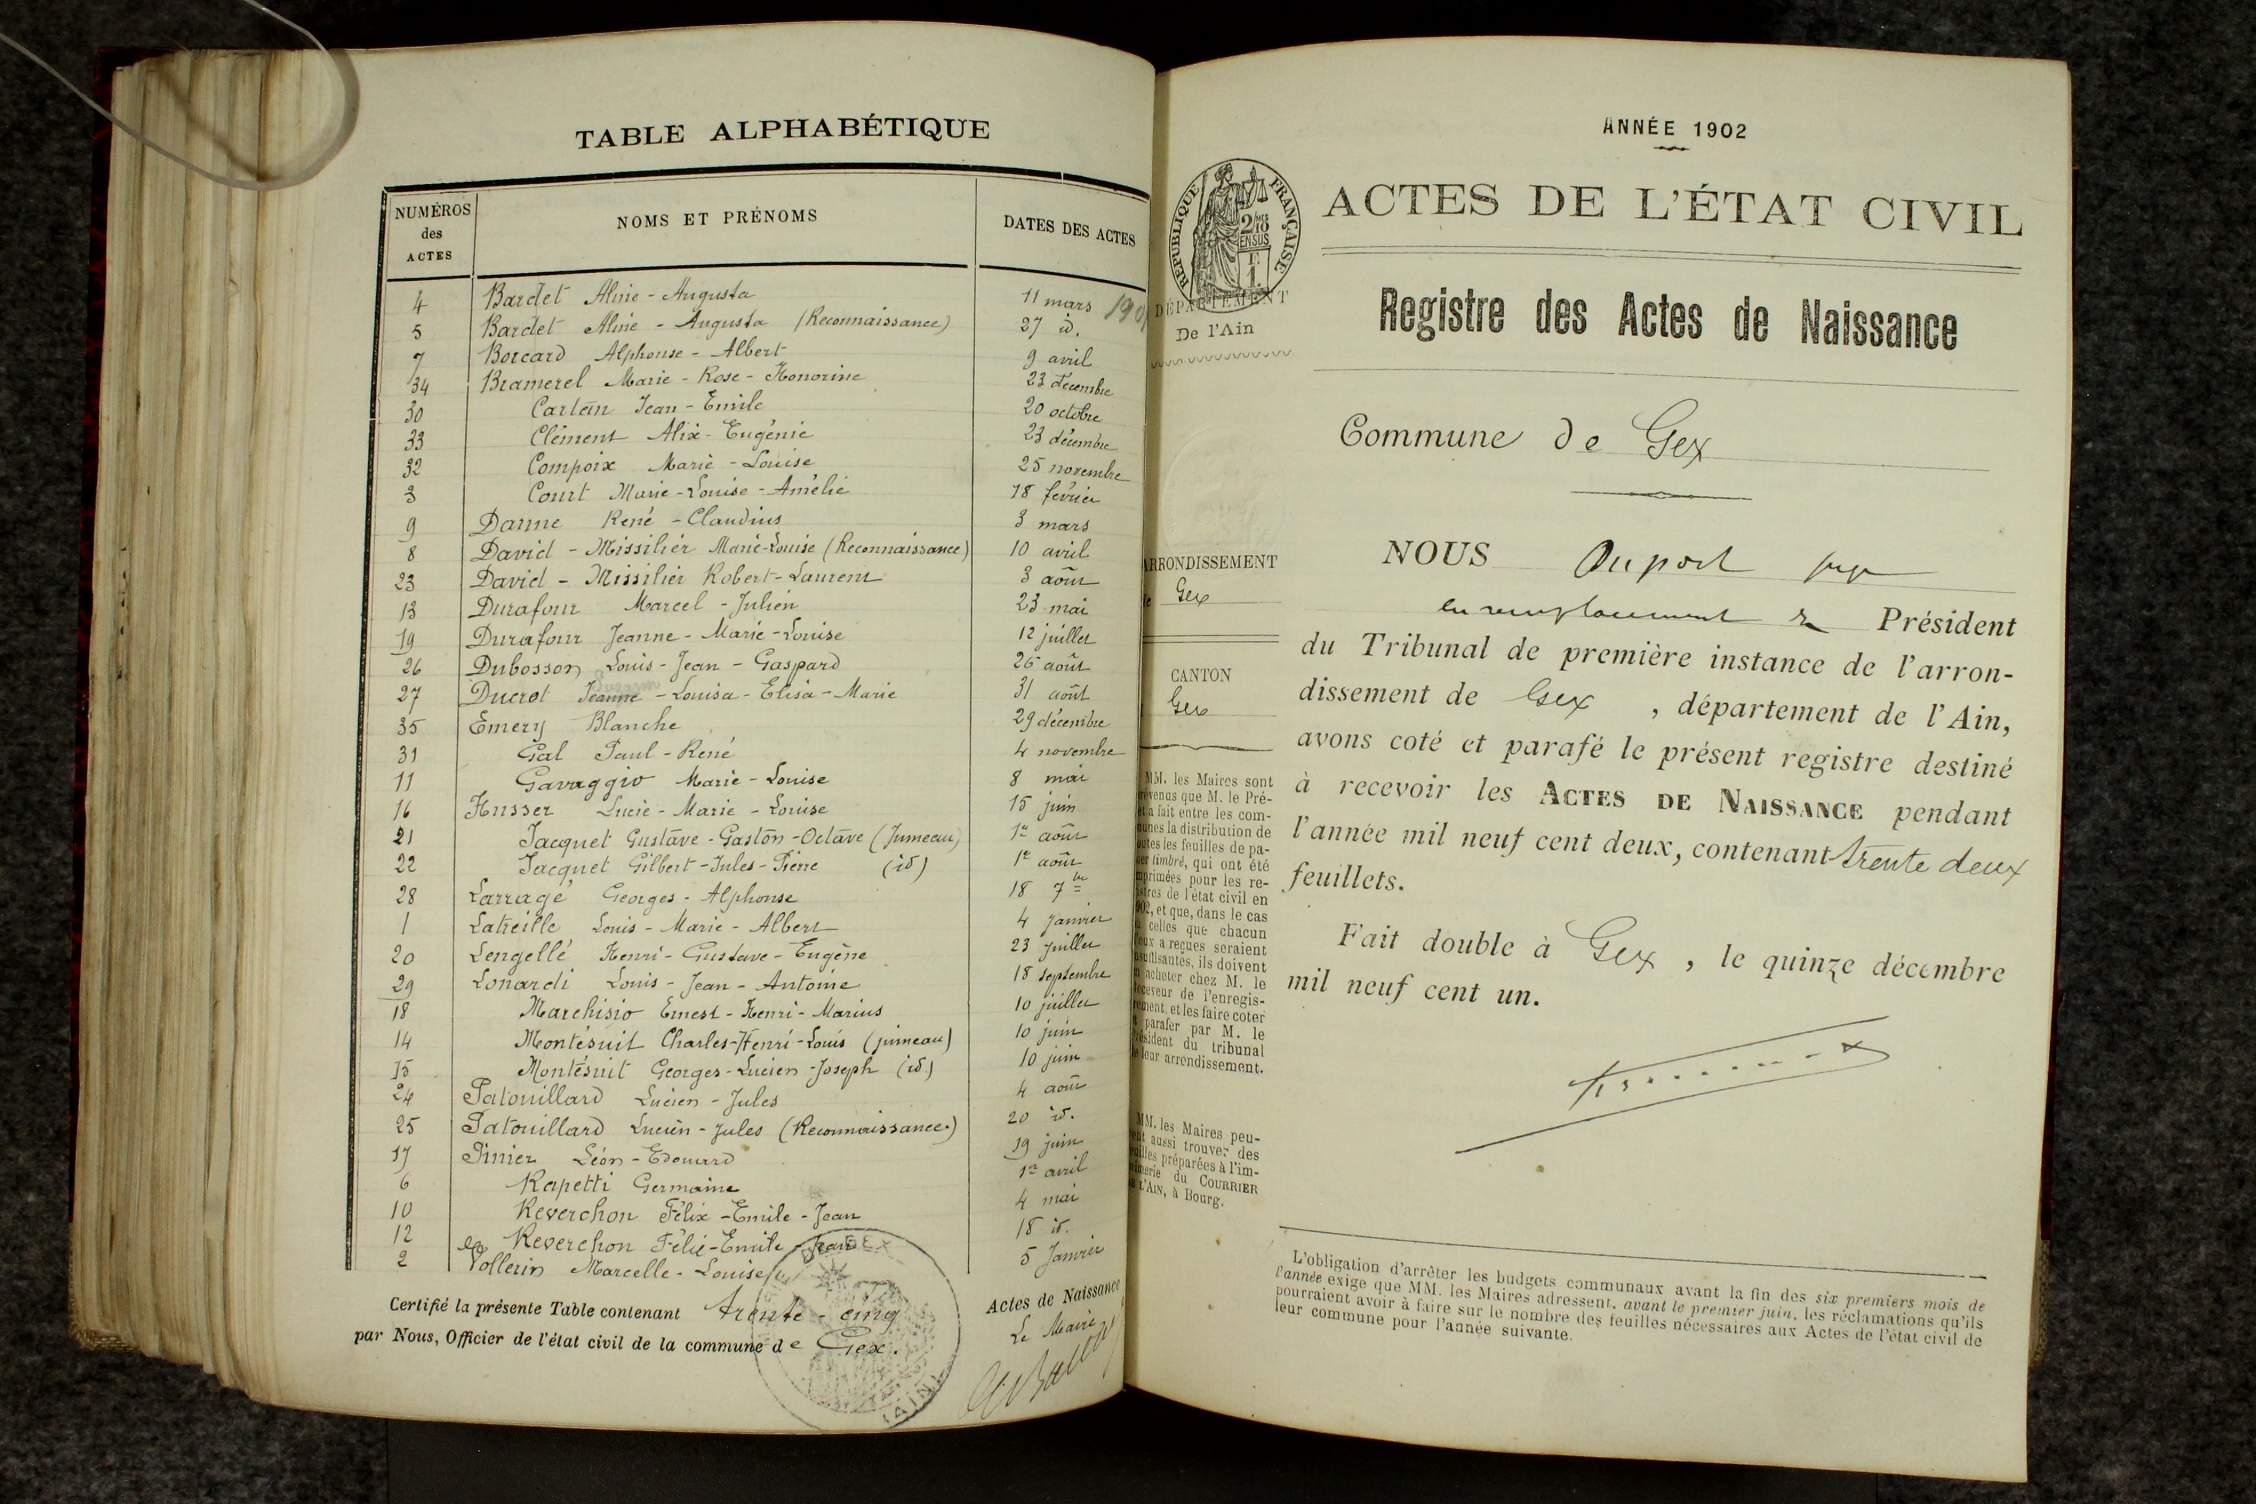 TABLE ALPHABÉTIQUE
NUMÉROS des ACTES NOMS ET PRÉNOMS DATES DES ACTES
4 Bardet Aline - Augusta 11 mars 190
5 Bardet Aline - Augusta (Reconnaissance) 27 id.
7 Borcard Alphonse - Albert 9 avril
34 Bramerel Marie - Rose - Honorine 23 décembre
30 Cartan Jean - Emile 20 octobre
33 Clément Alix - Eugénie 23 décembre
32 Compoix Marie - Louise 25 novembre
3 Court Marie - Louise - Amélie 18 février
9 Danne René - Claudius 3 mars
8 David - Missilier Marie-Louise (Reconnaissance) 10 avril
23 David - Missilier Robert - Laurent 3 août
13 Durafour Marcel - Julien 23 mai
19 Durafour Jeanne - Marie - Louise 12 juillet
26 Dubosson Louis - Jean - Gaspard 26 août
27 Ducrot Jeanne - Louisa - Elisa - Marie 31 août
35 Emery Blanche 29 décembre
31 Gal Paul - René 4 novembre
11 Gavaggio Marie - Louise 8 mai
16 Husser Lucie - Marie - Louise 15 juin
21 Jacquet Gustave - Gaston - Octave (Jumeau) 1er août
22 Jacquet Gilbert - Jules - Pierre (id) 1er août
28 Larragé Georges - Alphonse 18 7bre
1 Latreille Louis - Marie - Albert 4 Janvier
20 Lengellé Henri - Gustave - Eugène 23 juillet
29 Lonardi Louis - Jean - Antoine 18 septembre
18 Marchisio Ernest - Henri - Marius 10 juillet
14 Montésuit Charles - Henri - Louis (jumeau) 10 juin
15 Montésuit Georges - Lucien - Joseph (id.) 10 juin
24 Patouillard Lucien - Jules 4 août
25 Patouillard Lucien - Jules (Reconnaissance.) 20 id.
17 Pinier Léon - Edouard 19 juin
6 Rapetti Germaine 1er avril
10 Reverchon Félix - Emile - Jean 4 mai
12 Reverchon Félix - Emile - Jean 18 id.
2 Vollerin Marcelle - Louise 5 Janvier
Certifié la présente Table contenant trente - cinq Actes de Naissance
par Nous, Officier de l'état civil de la commune de Gex. Le Maire
DE GEX
(AIN)
ANNÉE 1902
RÉPUBLIQUE FRANÇAISE
2/10 EN SUS
1 F.
ACTES DE L'ÉTAT CIVIL
DÉPARTEMENT
De l'Ain
Registre des Actes de Naissance
Commune de Gex
ARRONDISSEMENT
de Gex
CANTON
Gex
MM. les Maires sont
prévenus que M. le Pré-
fet a fait entre les com-
munes la distribution de
toutes les feuilles de pa-
pier timbré, qui ont été
imprimées pour les re-
gistres de l'état civil en
1902, et que, dans le cas
où celles que chacun
d'eux a reçues seraient
insuffisantes, ils doivent
en acheter chez M. le
Receveur de l'enregis-
trement, et les faire coter
et parafer par M. le
Président du tribunal
de leur arrondissement.
MM. les Maires peu-
vent aussi trouver des
feuilles préparées à l'im-
primerie du COURRIER
DE L'AIN, à Bourg.
NOUS Duport juge
en remplacement de Président
du Tribunal de première instance de l'arron-
dissement de Gex , département de l'Ain,
avons coté et parafé le présent registre destiné
à recevoir les ACTES DE NAISSANCE pendant
l'année mil neuf cent deux, contenant trente deux
feuillets.
Fait double à Gex , le quinze décembre
mil neuf cent un.
L'obligation d'arrêter les budgets communaux avant la fin des six premiers mois de
l'année exige que MM. les Maires adressent, avant le premier juin, les réclamations qu'ils
pourraient avoir à faire sur le nombre des feuilles nécessaires aux Actes de l'état civil de
leur commune pour l'année suivante.